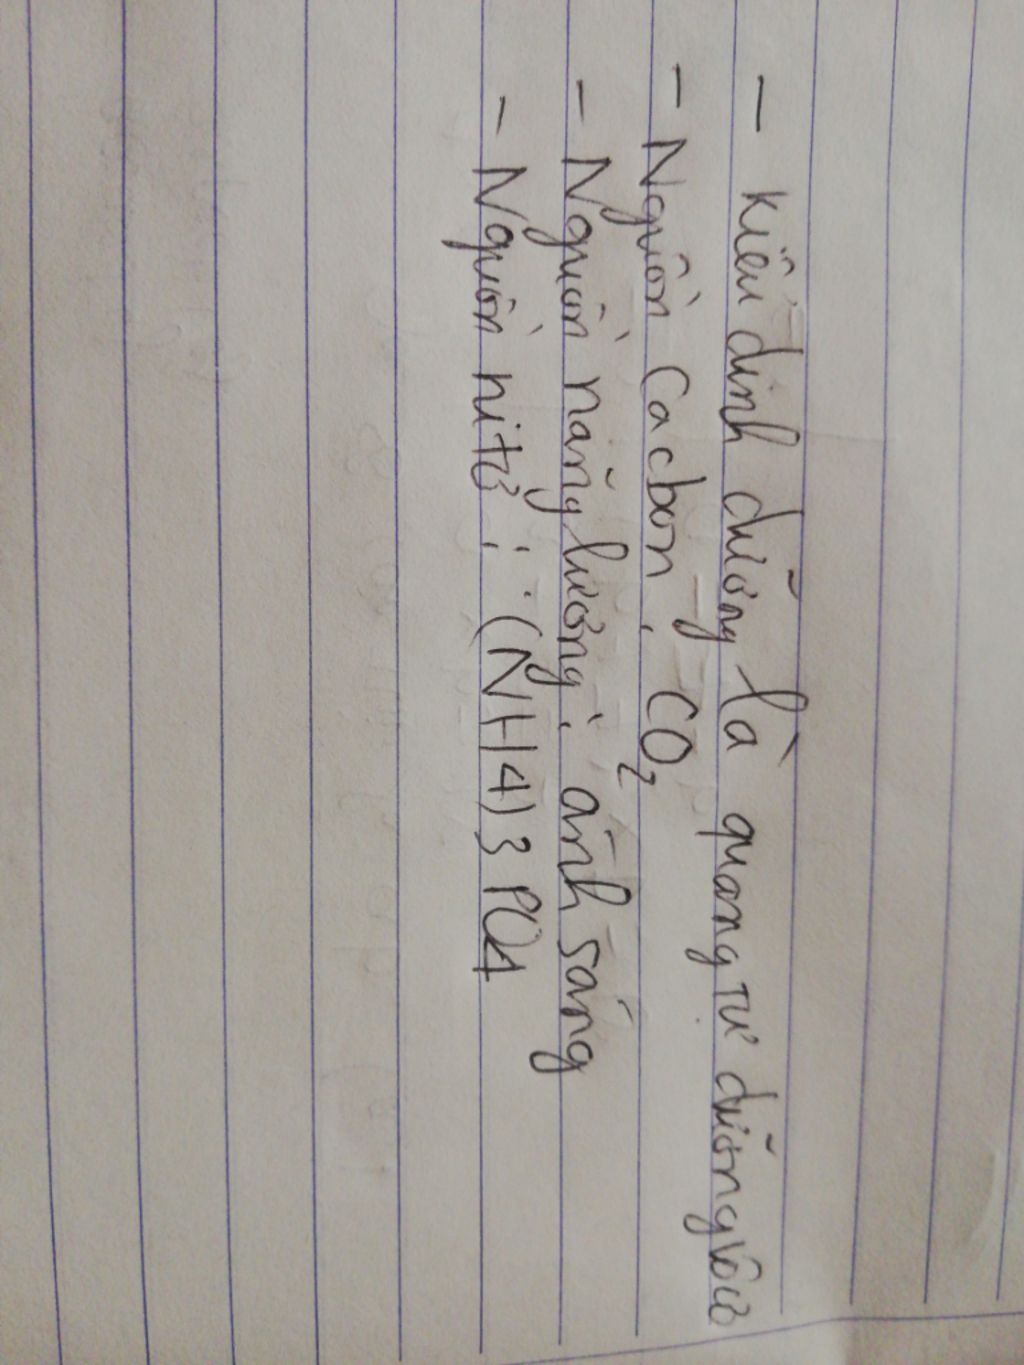 - Kiểu dinh dưỡng là quang tự dưỡng vô cơ
- Nguồn cacbon: CO2
- Nguồn năng lượng: ánh sáng
- Nguồn nitơ: (NH4)3PO4